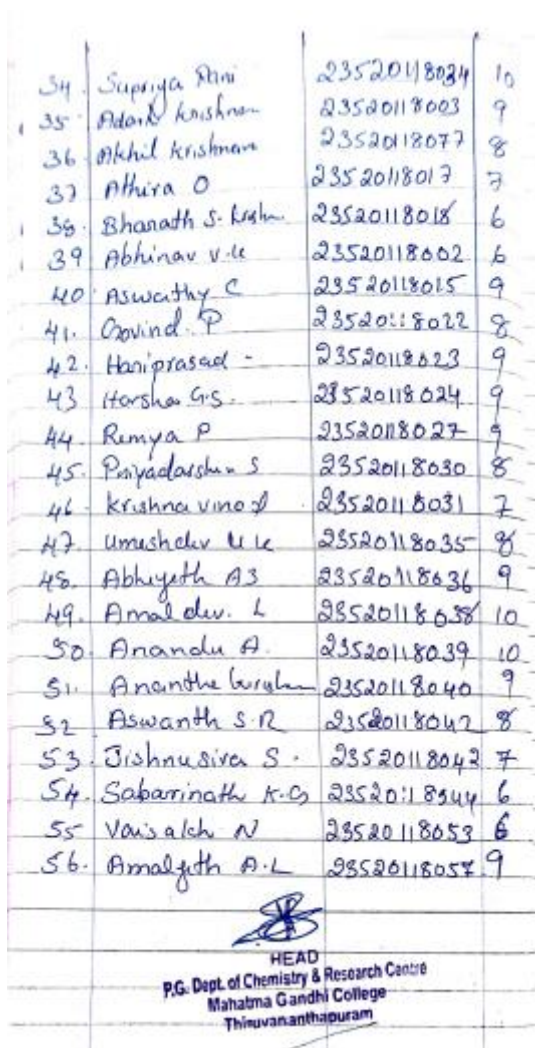 34. Supriya Rani 23520118034 10
35. Adarsh Krishnan 23520118003 9
36. Akhil Krishnan 23520118077 8
37 Athira O 23520118017 7
38. Bharath S. 23520118018 6
39 Abhinav V.K 23520118002 6
40 Aswathy C 23520118015 9
41. Govind. P 23520118022 8
42. Hariprasad - 23520118023 9
43 Harsha G.S. 23520118024 9
44. Remya P 23520118027 9
45. Priyadarshan S 23520118030 8
46 Krishna vinod 23520118031 7
47. Umeshdev U K 23520118035 8
48. Abhijeth A S 23520118036 9
49. Amal dev. L 23520118038 10
50. Anandu A. 23520118039 10
51. 23520118040 9
52 Aswanth S.R 23520118042 8
53. Jishnusiva S. 23520118043 7
54. Sabarinath K.G 23520118044 6
55 Vaisakh N 23520118053 6
56. Amaljith A.L 23520118057 9
HEAD
P.G. Dept. of Chemistry & Research Centre
Mahatma Gandhi College
Thiruvananthapuram